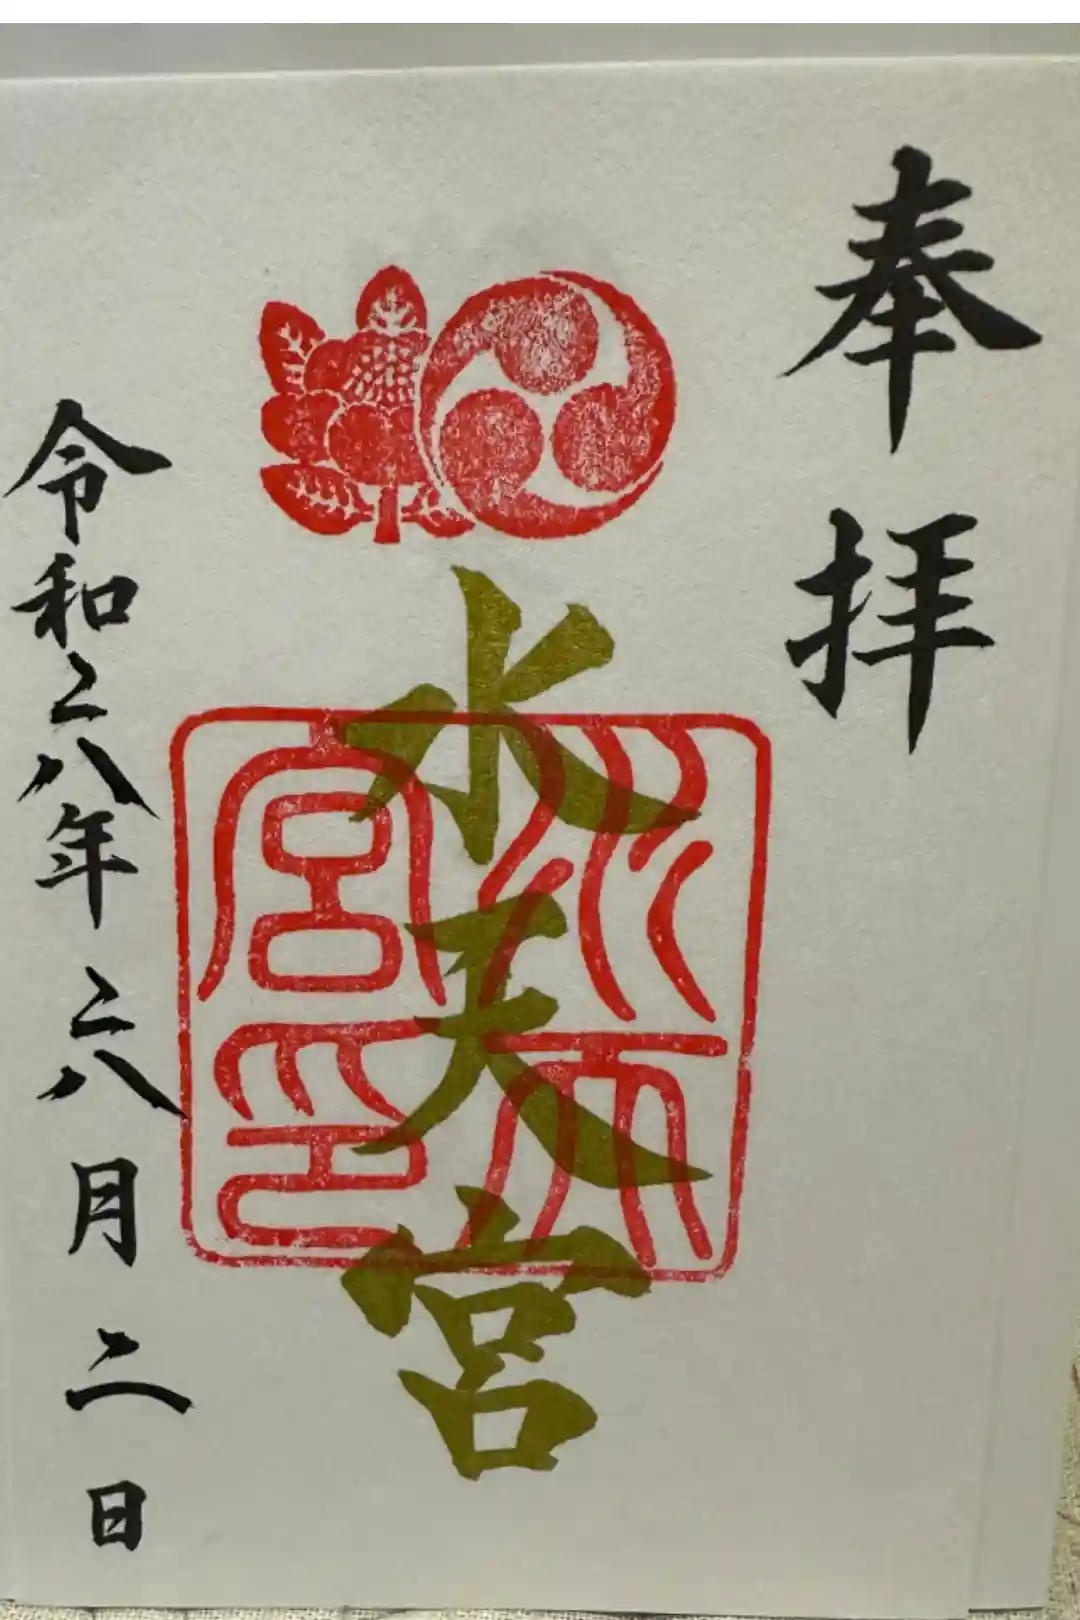 奉拝
水天宮
水天
宮印
令和六年六月二日